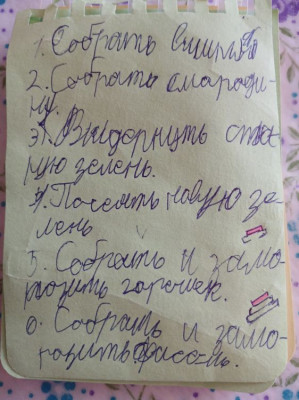 1. Собрать вишню
2. Собрать смароди-
ну.
3. Выдернуть ста-
рую зелень.
4. Посеять новую зе-
лень
5. Собрать и замо-
розить горошек.
6. Собрать и замо-
розить фасоль.